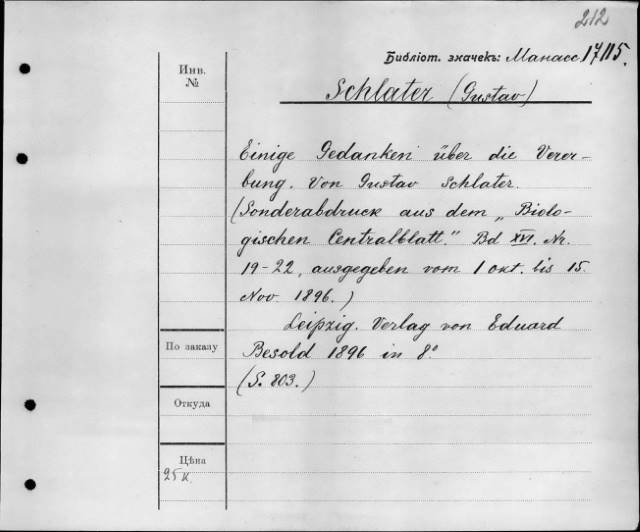 212
Библіот. значекъ: Манасс. 17/115.
Инв.
№
Schlater (Gustav)
Einige Gedanken über die Verer-
bung. Von Gustav Schlater.
(Sonderabdruck aus dem „Biolo-
gischen Centralblatt." Bd XVI. Nr.
19-22, ausgegeben vom 1 Okt. bis 15.
Nov. 1896.)
Leipzig. Verlag von Eduard
Besold 1896 in 8°
(S. 803.)
По заказу
Откуда
Цѣна
25 к.